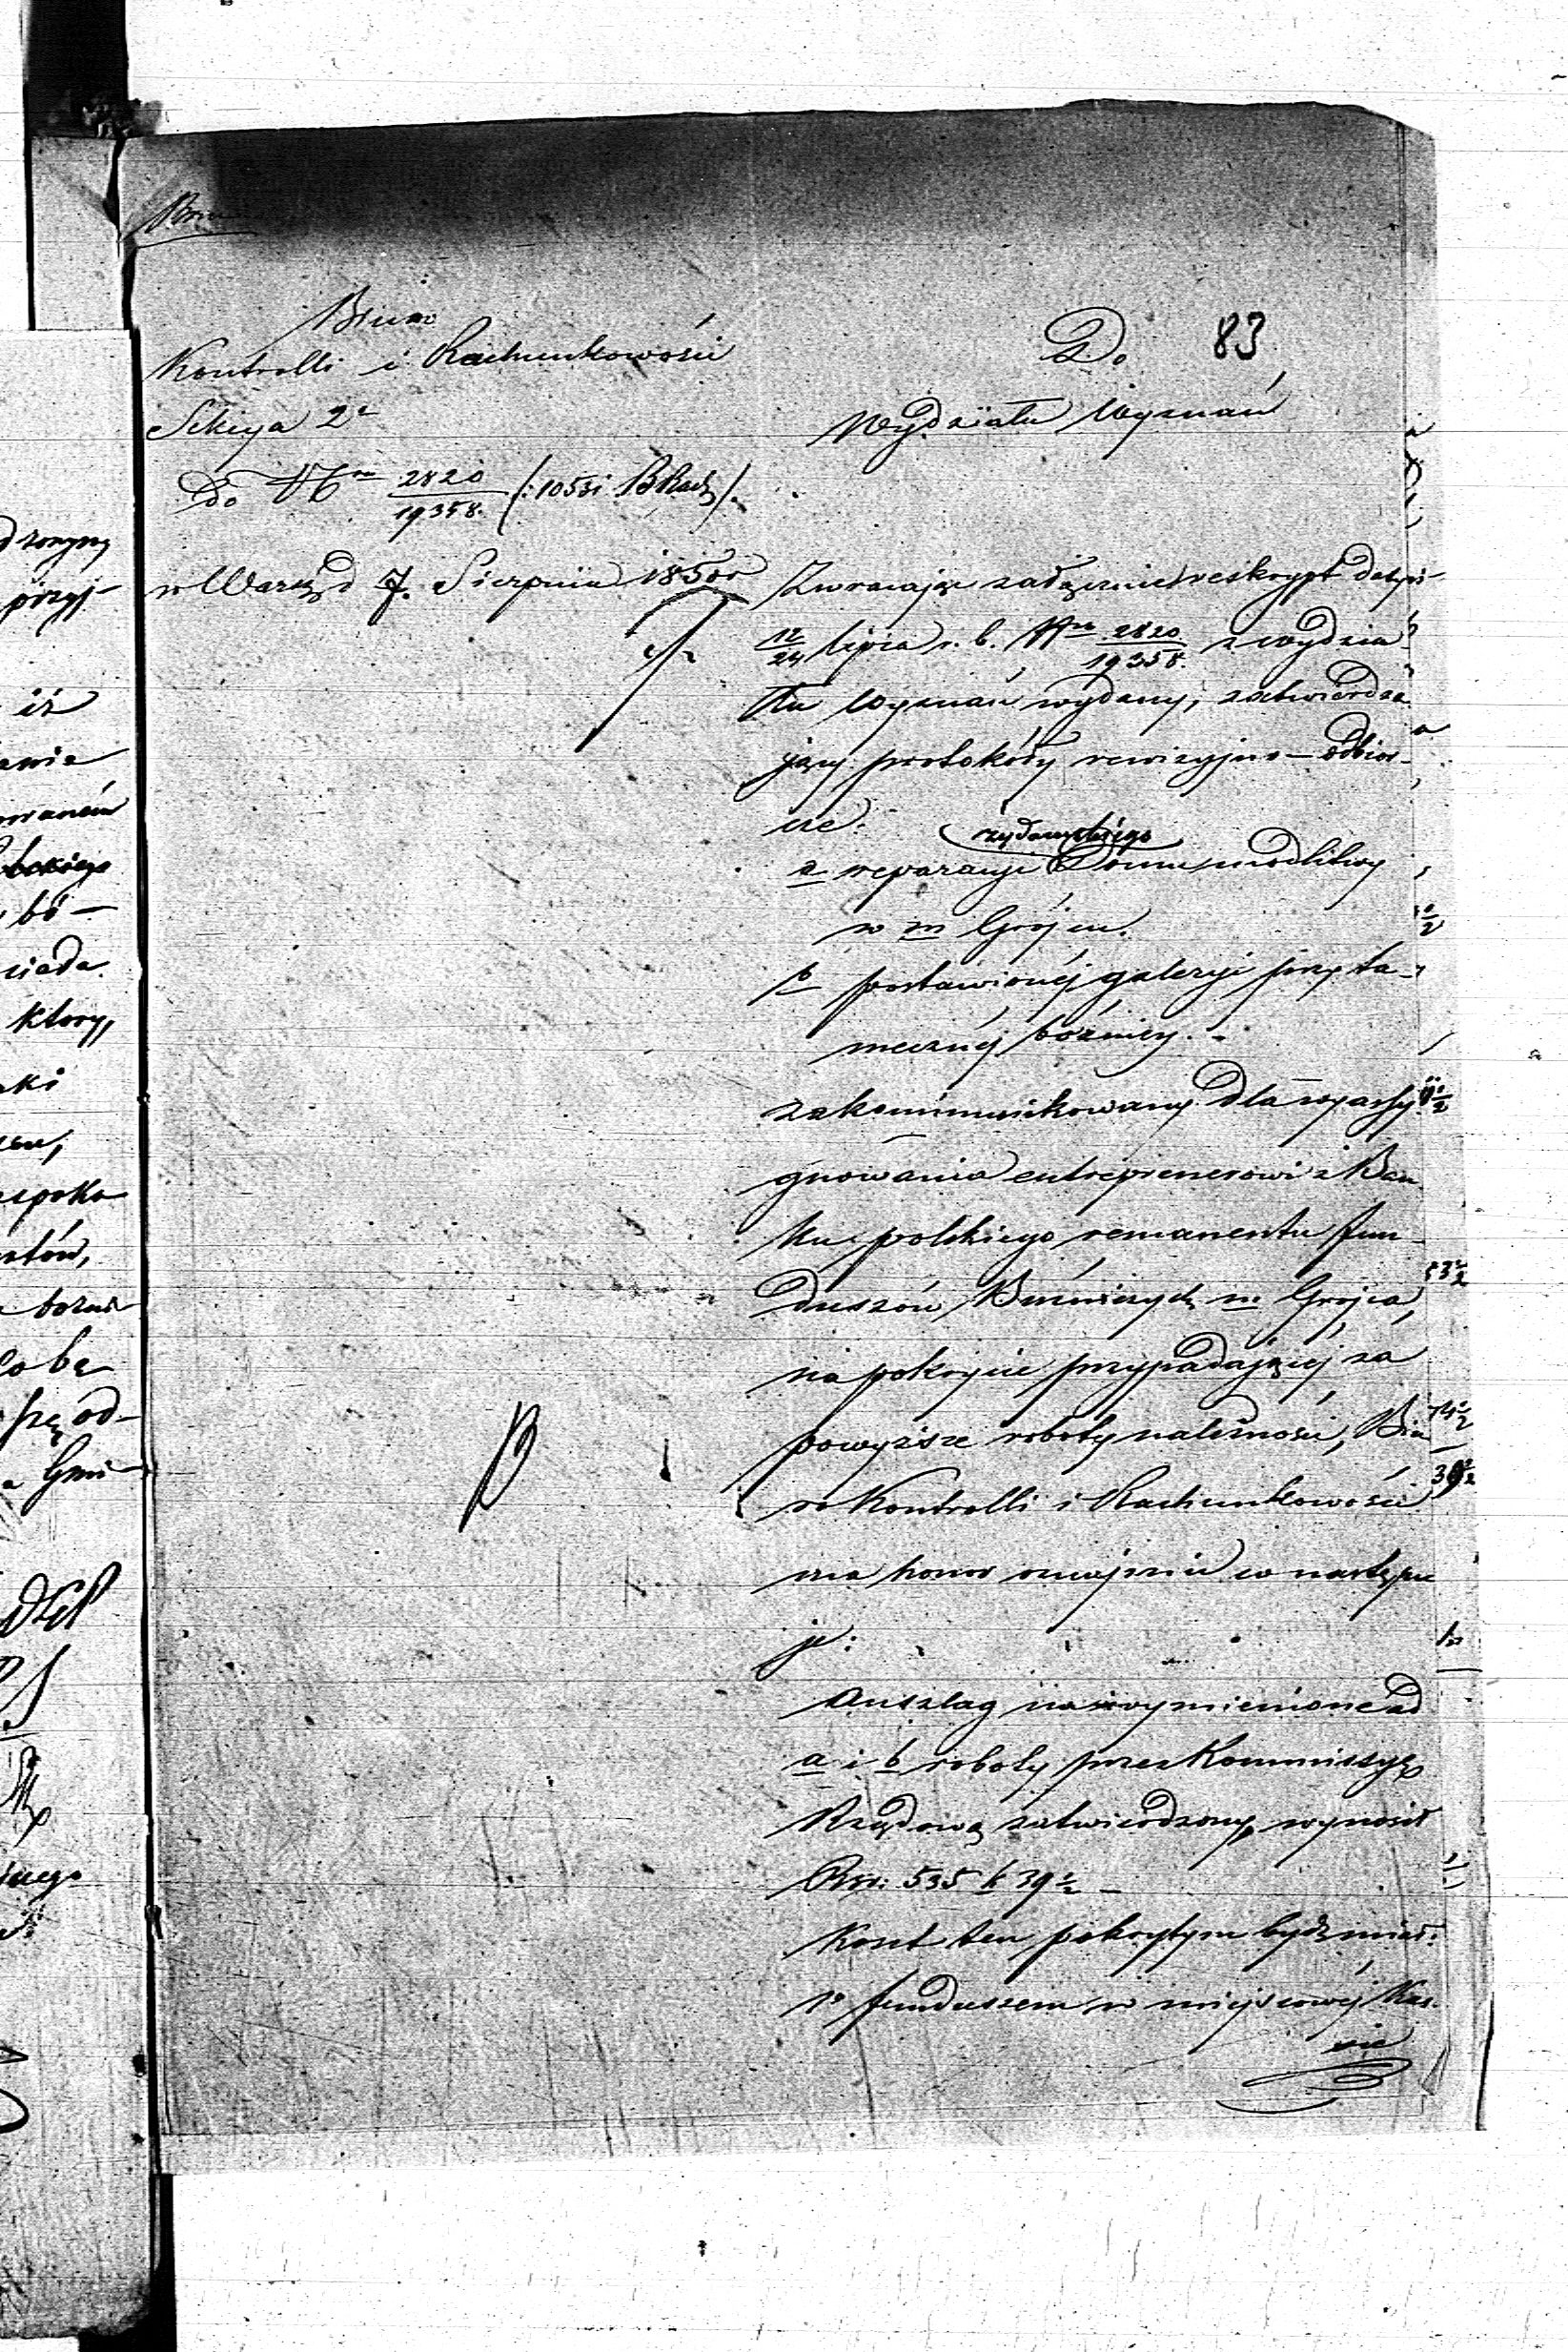 Biuro
Kontrolli i Rachunkowości
Sekcya 2a
Do Nru 2820/19358. (:10531 BRach:).
w Warsz d 7. Sierpnia 1850 r
83
Do
Wydziału Wyznań
Zwracając załącznie reskrypt daty
12/24 Lipca r. b. Nro 2820/19358. z Wydzia-
łu Wyznań wydany, zatwierdza
jący protokóły rewizyjno-odbior-
cze.
żydowskiego
a reparacyi Domu modlitwy
w m Grójcu.
b postawionéj galeryi przy ta-
mecznéj bóżnicy.
zakommunikowany dla wyassy-
gnowania entreprenerowi z Ban
ku polskiego remanentu fun-
duszów Bóżniczych m Grójca,
na pokrycie przypadającéj za
powyższe roboty należności, Biu
ro Kontrolli i Rachunkowości
ma honor oznajmić co następu
je:
Anszlag na wymienione ad
a i b roboty przez Kommissyę
Rządową zatwierdzony, wynosił
Rsr: 535 k 39 1/2 –
Koszt ten pokrytym bydź miał:
1o funduszem w miejscowéj Kas-
sie
dronym
przyj-
iż
ania
bó-
siada.
ktory,
aki
spoko
któw,
się od-
a Gmi-